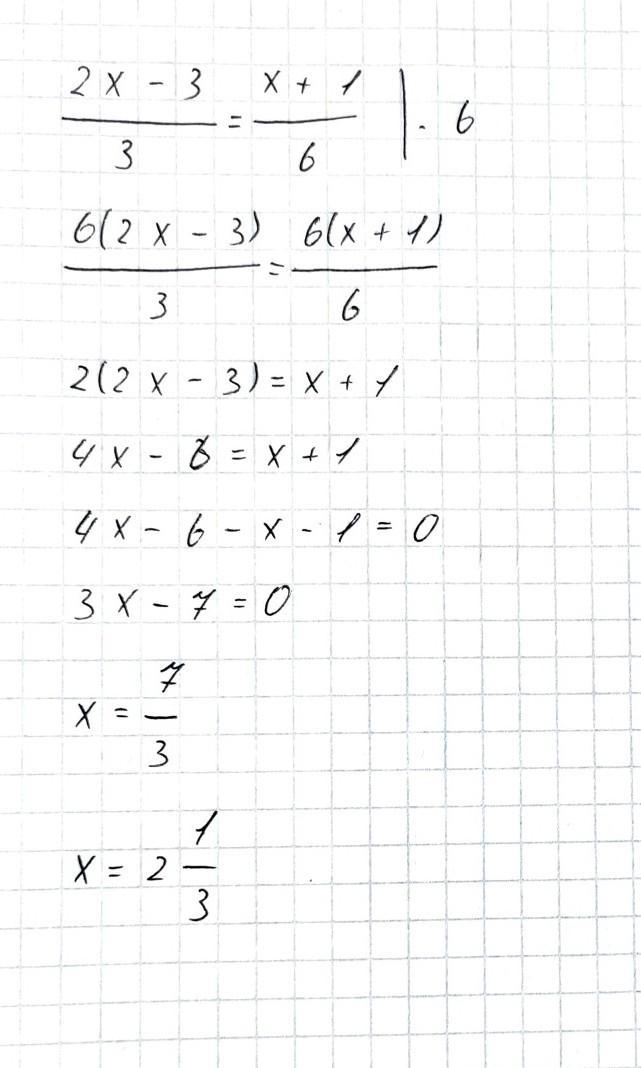 (2x - 3)/3 = (x + 1)/6 | · 6
6(2x - 3)/3 = 6(x + 1)/6
2(2x - 3) = x + 1
4x - 6 = x + 1
4x - 6 - x - 1 = 0
3x - 7 = 0
x = 7/3
x = 2 1/3